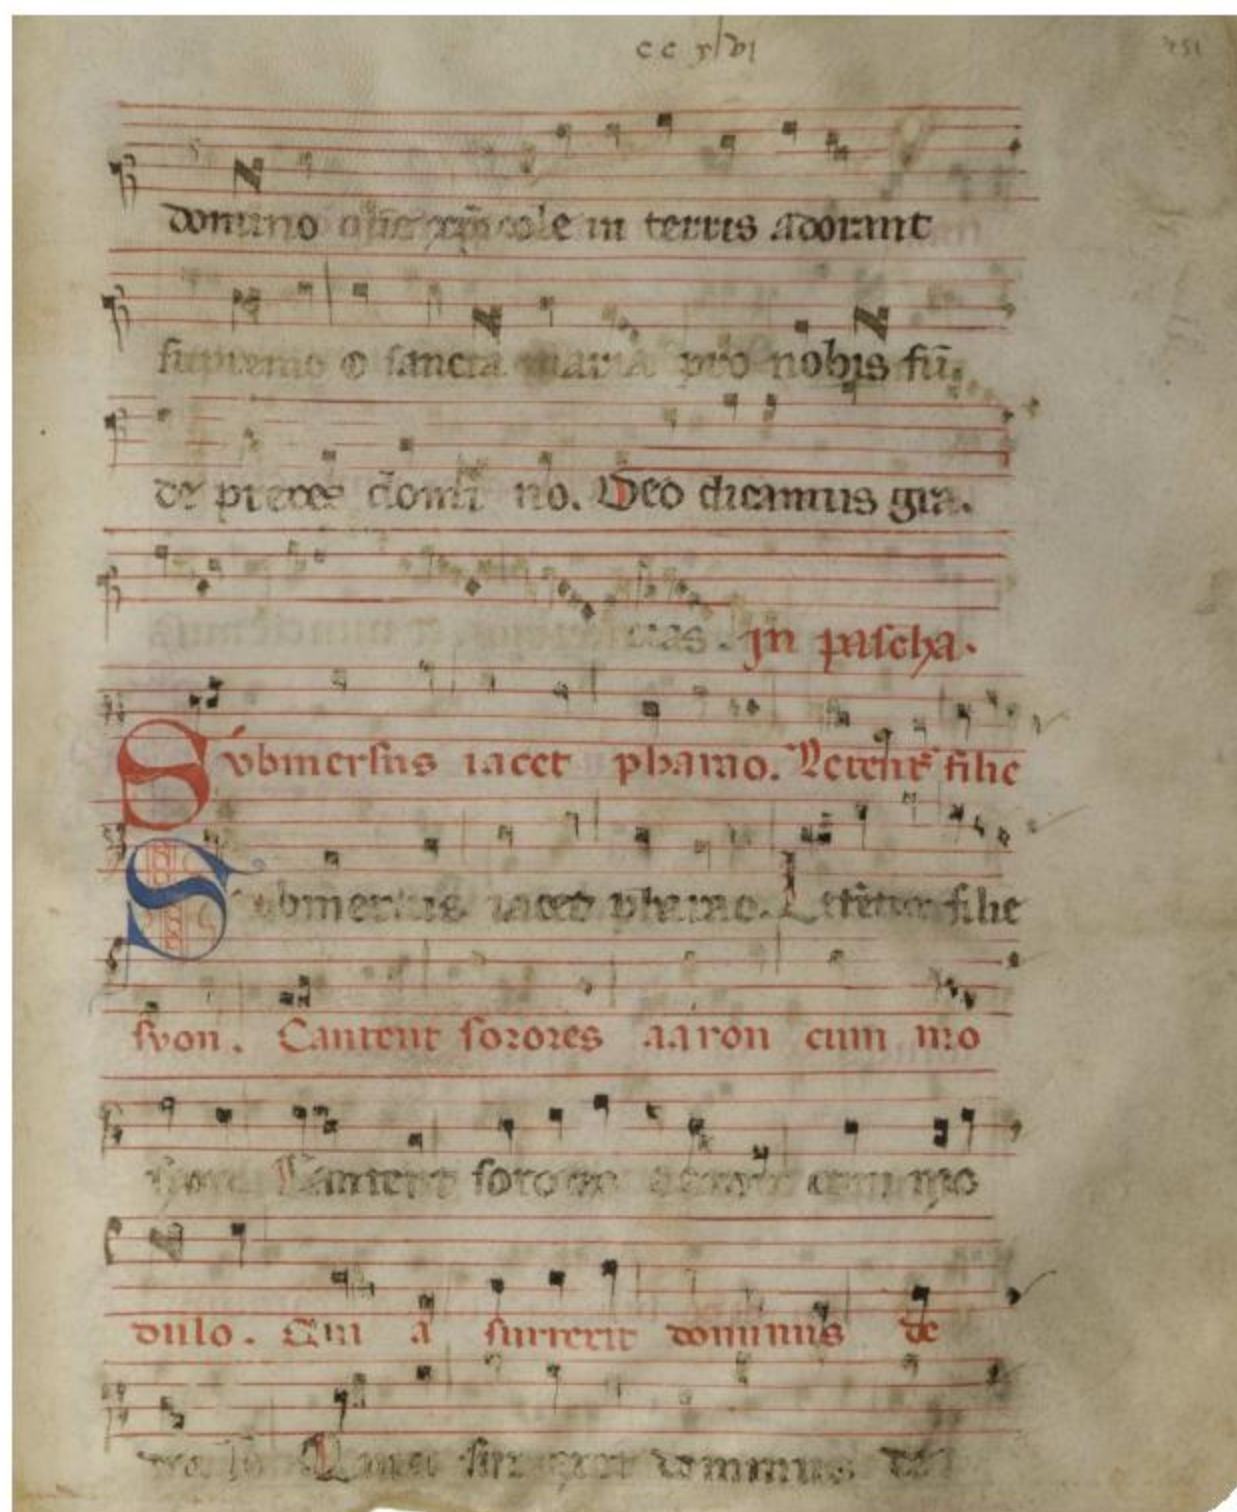 cc xlvi 251
domino cole in terris adorant
supremo o sancta maria pro nobis fū
de preces domi no. Deo dicamus gra.
cias. In pascha.
Submersus iacet pharao. Letent filie
Submersus iacet pharao. filie
syon. Cantent sorores aaron cum mo
syon. Cantent sorores aaron cum mo
dulo. Qui a surrexit dominus de
surrexit dominus de